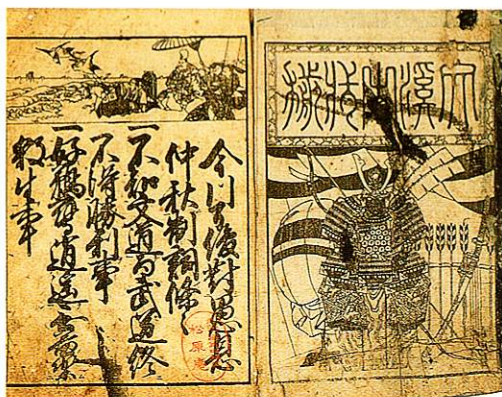 今川了俊對愚息
仲秋制詞條々
一不知文道而武道終
不得勝利事
一好鵜鷹逍遥無益
殺生事
松原